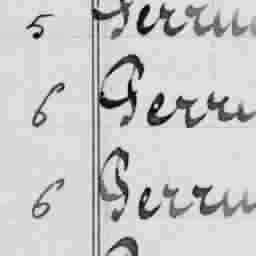 5 Ferru
6 Ferru
6 Ferru